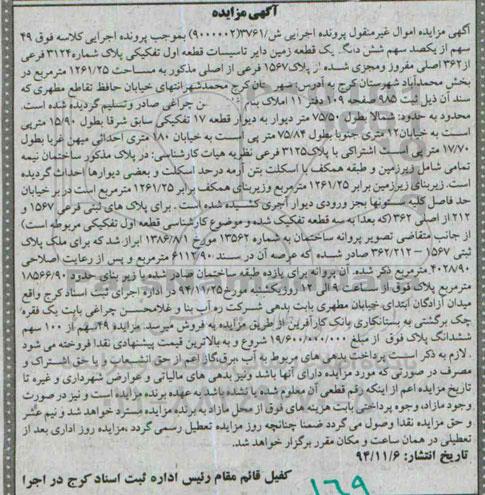 آگهی مزایده
آگهی مزایده اموال غیرمنقول پرونده اجرایی ش/۳۷۶۱(۹۰۰۰۰۰۲) بموجب پرونده اجرایی کلاسه فوق ۴۹
سهم از یکصد سهم شش دانگ یک قطعه زمین دایر تاسیسات قطعه اول تفکیکی پلاک شماره ۳۱۲۴ فرعی
از ۳۶۲ اصلی مفروز ومجزی شده از پلاک ۱۵۶۷ فرعی از اصلی مذکور به مساحت ۱۲۶۱/۲۵ مترمربع در
بخش محمدآباد شهرستان کرج به آدرس: شهرستان کرج محمدشهر انتهای خیابان حافظ تقاطع مطهری که
سند آن ذیل ثبت ۹۸۵ صفحه ۱۰۹ دفتر ۱۱ املاک بنام ن چراغی صادر وتسلیم گردیده شده است.
محدود به حدود: شمالا بطول ۷۵/۵۰ متر دیوار به دیوار قطعه ۱۷ تفکیکی سابق شرقا بطول ۱۵/۹۰ متر پی
است به خیابان ۱۲ متری جنوبا بطول ۷۵/۸۴ متر پی است به خیابان ۱۸۰ متری احداثی میهن غربا بطول
۱۷/۷۰ متر پی است اشتراکی با پلاک ۳۱۲۵ فرعی نظریه هیات کارشناسی: در پلاک مذکور ساختمان نیمه
تمامی شامل زیرزمین و طبقه همکف با اسکلت بتن آرمه درحد اسکلت و بعضی دیوارها احداث گردیده
است. زیربنای زیرزمین برابر ۱۲۶۱/۲۵ مترمربع وزیربنای همکف برابر ۱۲۶۱/۲۵ مترمربع است در بر خیابان
حد فاصل کلیه ستونها بجز ورودی دیوار آجری کشیده شده است. برای پلاک های ثبتی فرعی ۱۵۶۷ و
۲۱۲ از اصلی ۳۶۲ (که بعدا به سه قطعه تفکیک شده و موضوع کارشناسی قطعه اول تفکیکی مربوطه است)
از جانب متقاضی تصویر پروانه ساختمان به شماره ۱۳۵۶۲ مورخ ۱۳۸۶/۸/۱ ابراز شد که برای ملک پلاک
ثبتی ۱۵۶۷ – ۳۶۲/۲۱۲ صادر شده که عرصه آن در سند ۶۱۱۲/۹۰ مترمربع و پس از رعایت (صلاحی
۴۰۲۸/۹۰ مترمربع ذکر شده. آن پروانه برای یازده طبقه ساختمان صادر شده با زیر بنای حدود ۱۸۵۶۶/۹۰
مترمربع پلاک فوق از ساعت ۹ الی ۱۲ روز یکشنبه مورخ ۹۴/۱۱/۲۵ در اداره اجرای ثبت اسناد کرج واقع
میدان آزادگان ابتدای خیابان مطهری بابت بدهی شرکت ره آب بنا و غلامحسن چراغی بابت یک فقره
چک برگشتی به بستانکاری بانک کارآفرین از طریق مزایده به فروش میرسد. مزایده ۴۹ سهم از ۱۰۰ سهم
ششدانگ پلاک فوق از مبلغ ۱۹/۶۰۰/۰۰۰/۰۰۰ شروع و به بالاترین قیمت پیشنهادی نقدا فروخته می شود
. لازم به ذکر است پرداخت بدهی های مربوط به آب ،برق،گاز اعم از حق انشعاب و یا حق اشتراک و
مصرف در صورتی که مورد مزایده دارای آنها باشد ونیز بدهی های مالیاتی و عوارض شهرداری و غیره تا
تاریخ مزایده اعم از اینکه رقم قطعی آن معلوم شده یا نشده باشد به عهده برنده مزایده است و نیز در صورت
وجود مازاد، وجوه پرداختی بابت هزینه های فوق از محل مازاد به برنده مزایده مسترد خواهد شد و نیم عشر
و حق مزایده نقدا وصول می گردد ضمنا چنانچه روز مزایده تعطیل رسمی گردد ،مزایده روز اداری بعد از
تعطیلی در همان ساعت و مکان مقرر برگزار خواهد شد.
تاریخ انتشار: ۹۴/۱۱/۶
کفیل قائم مقام رئیس اداره ثبت اسناد کرج در اجرا
۱۶۹